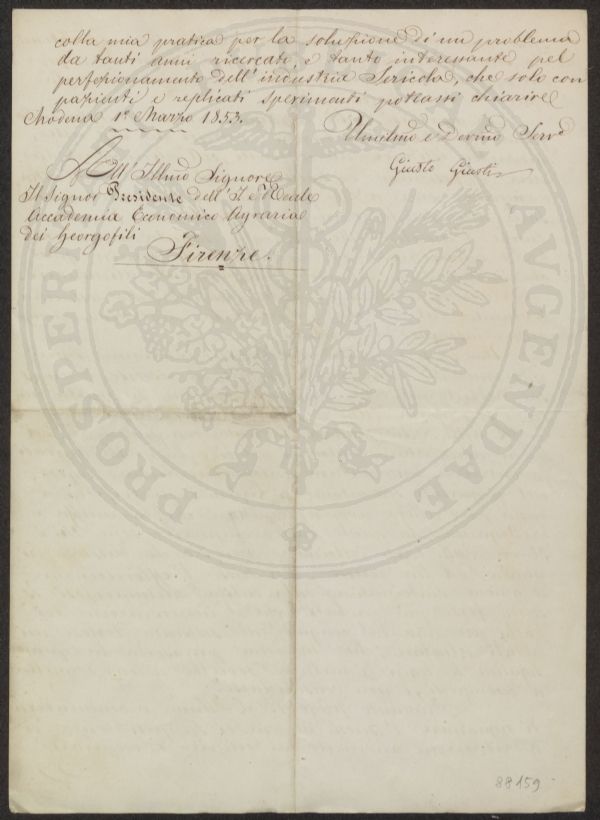 colla mia pratica per la soluzione di un problema
da tanti anni ricercato, e tanto interessante pel
perfezionamento dell'industria Sericola, che solo con
pazienti e replicati sperimenti potrassi chiarire
Modena 1° Marzo 1853.
Umilmo e Devmo Servo
Giusto Giusti
All'Illmo Signore
Il Signor Presidente dell'I e Reale
Accademia Economico Agraria
dei Georgofili
Firenze.
PROSPERITATI AUGENDAE
88159